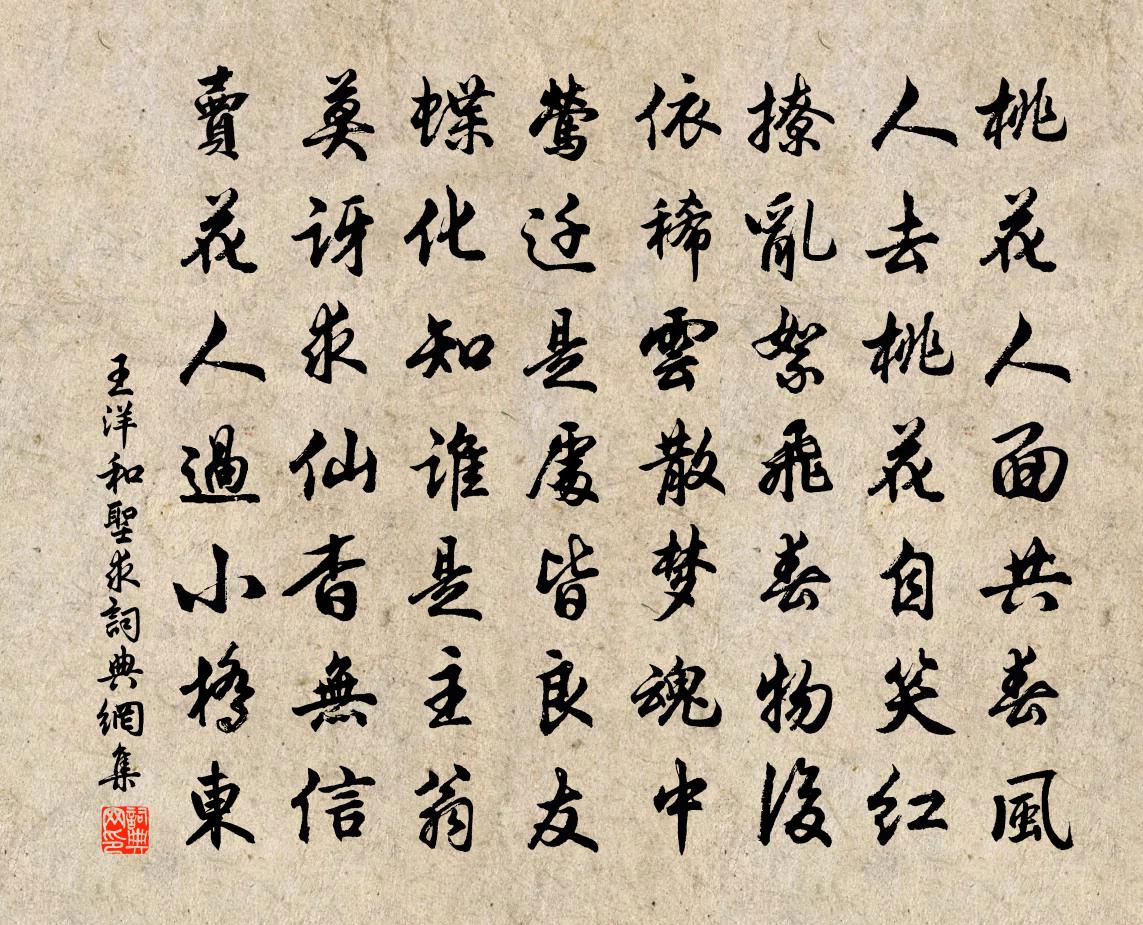 桃花人面共春風
人去桃花自笑紅
撩亂絮飛春物後
依稀雲散梦魂中
鶯迁是處皆良友
蝶化知誰是主翁
莫訝求仙香無信
賣花人過小橋東
王洋和聖求詞典網集
詞典网印